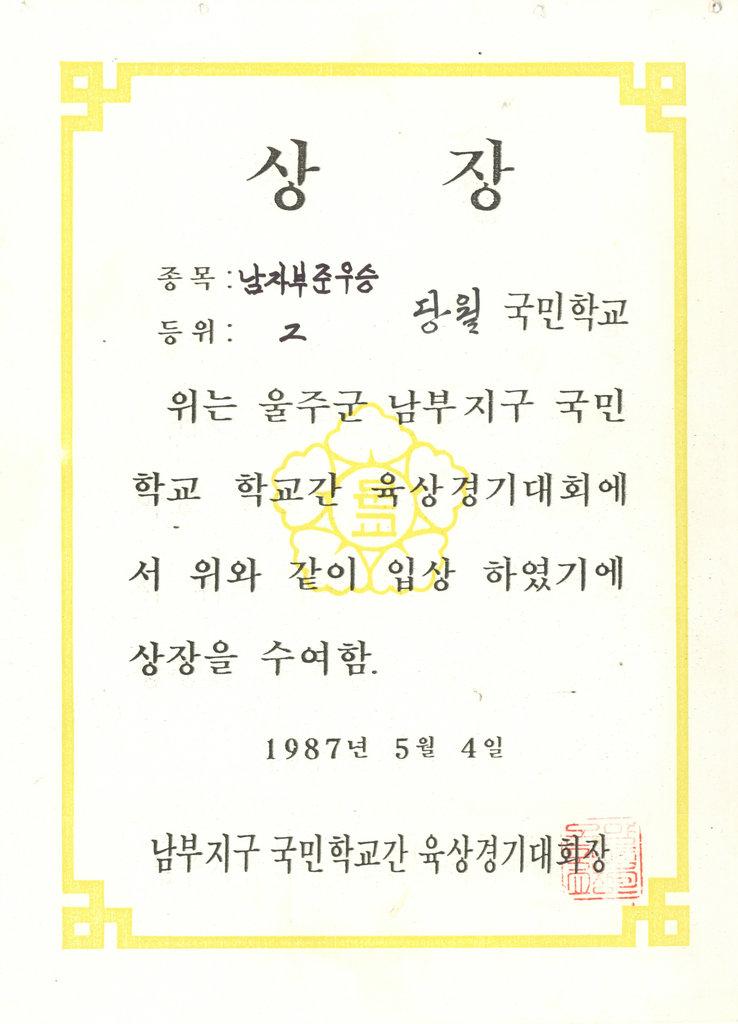 상 장
종목: 남자부준우승
등위: 2
당월 국민학교
위는 울주군 남부지구 국민
학교 학교간 육상경기대회에
서 위와 같이 입상 하였기에
상장을 수여함.
1987년 5월 4일
남부지구 국민학교간 육상경기대회장